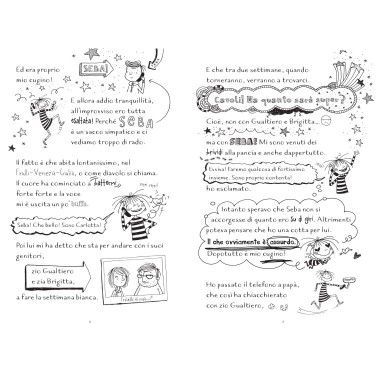 Ed era proprio
mio cugino!
SEBA!
E allora addio tranquillità,
all'improvviso ero tutta
esaltata! Perché SEBA
è un sacco simpatico e ci
vediamo troppo di rado.
Il fatto è che abita lontanissimo, nel
o come diavolo si chiama.
Il cuore ha cominciato a battere
forte forte e la voce
mi è uscita un po' buffa.
Seba! Che bello! Sono Carlotta!
Poi lui mi ha detto che sta per andare con i suoi
genitori,
zio Gualtiero
e zia Brigitta,
a fare la settimana bianca.
E che tra due settimane, quando
torneranno, verranno a trovarci.
Cavoli! Ma quanto sarà super?
Cioè, non con Gualtiero e Brigitta...
ma con SEBA! Mi sono venuti dei
brividi alla pancia e anche dappertutto.
Evviva! Faremo qualcosa di fortissimo
insieme. Sono proprio contenta!
ho esclamato.
Intanto speravo che Seba non si
accorgesse di quanto ero su di giri. Altrimenti
poteva pensare che ho una cotta per lui.
Il che ovviamente è assurdo.
Dopotutto è mio cugino!
Ho passato il telefono a papà,
che così ha chiacchierato
con zio Gualtiero.